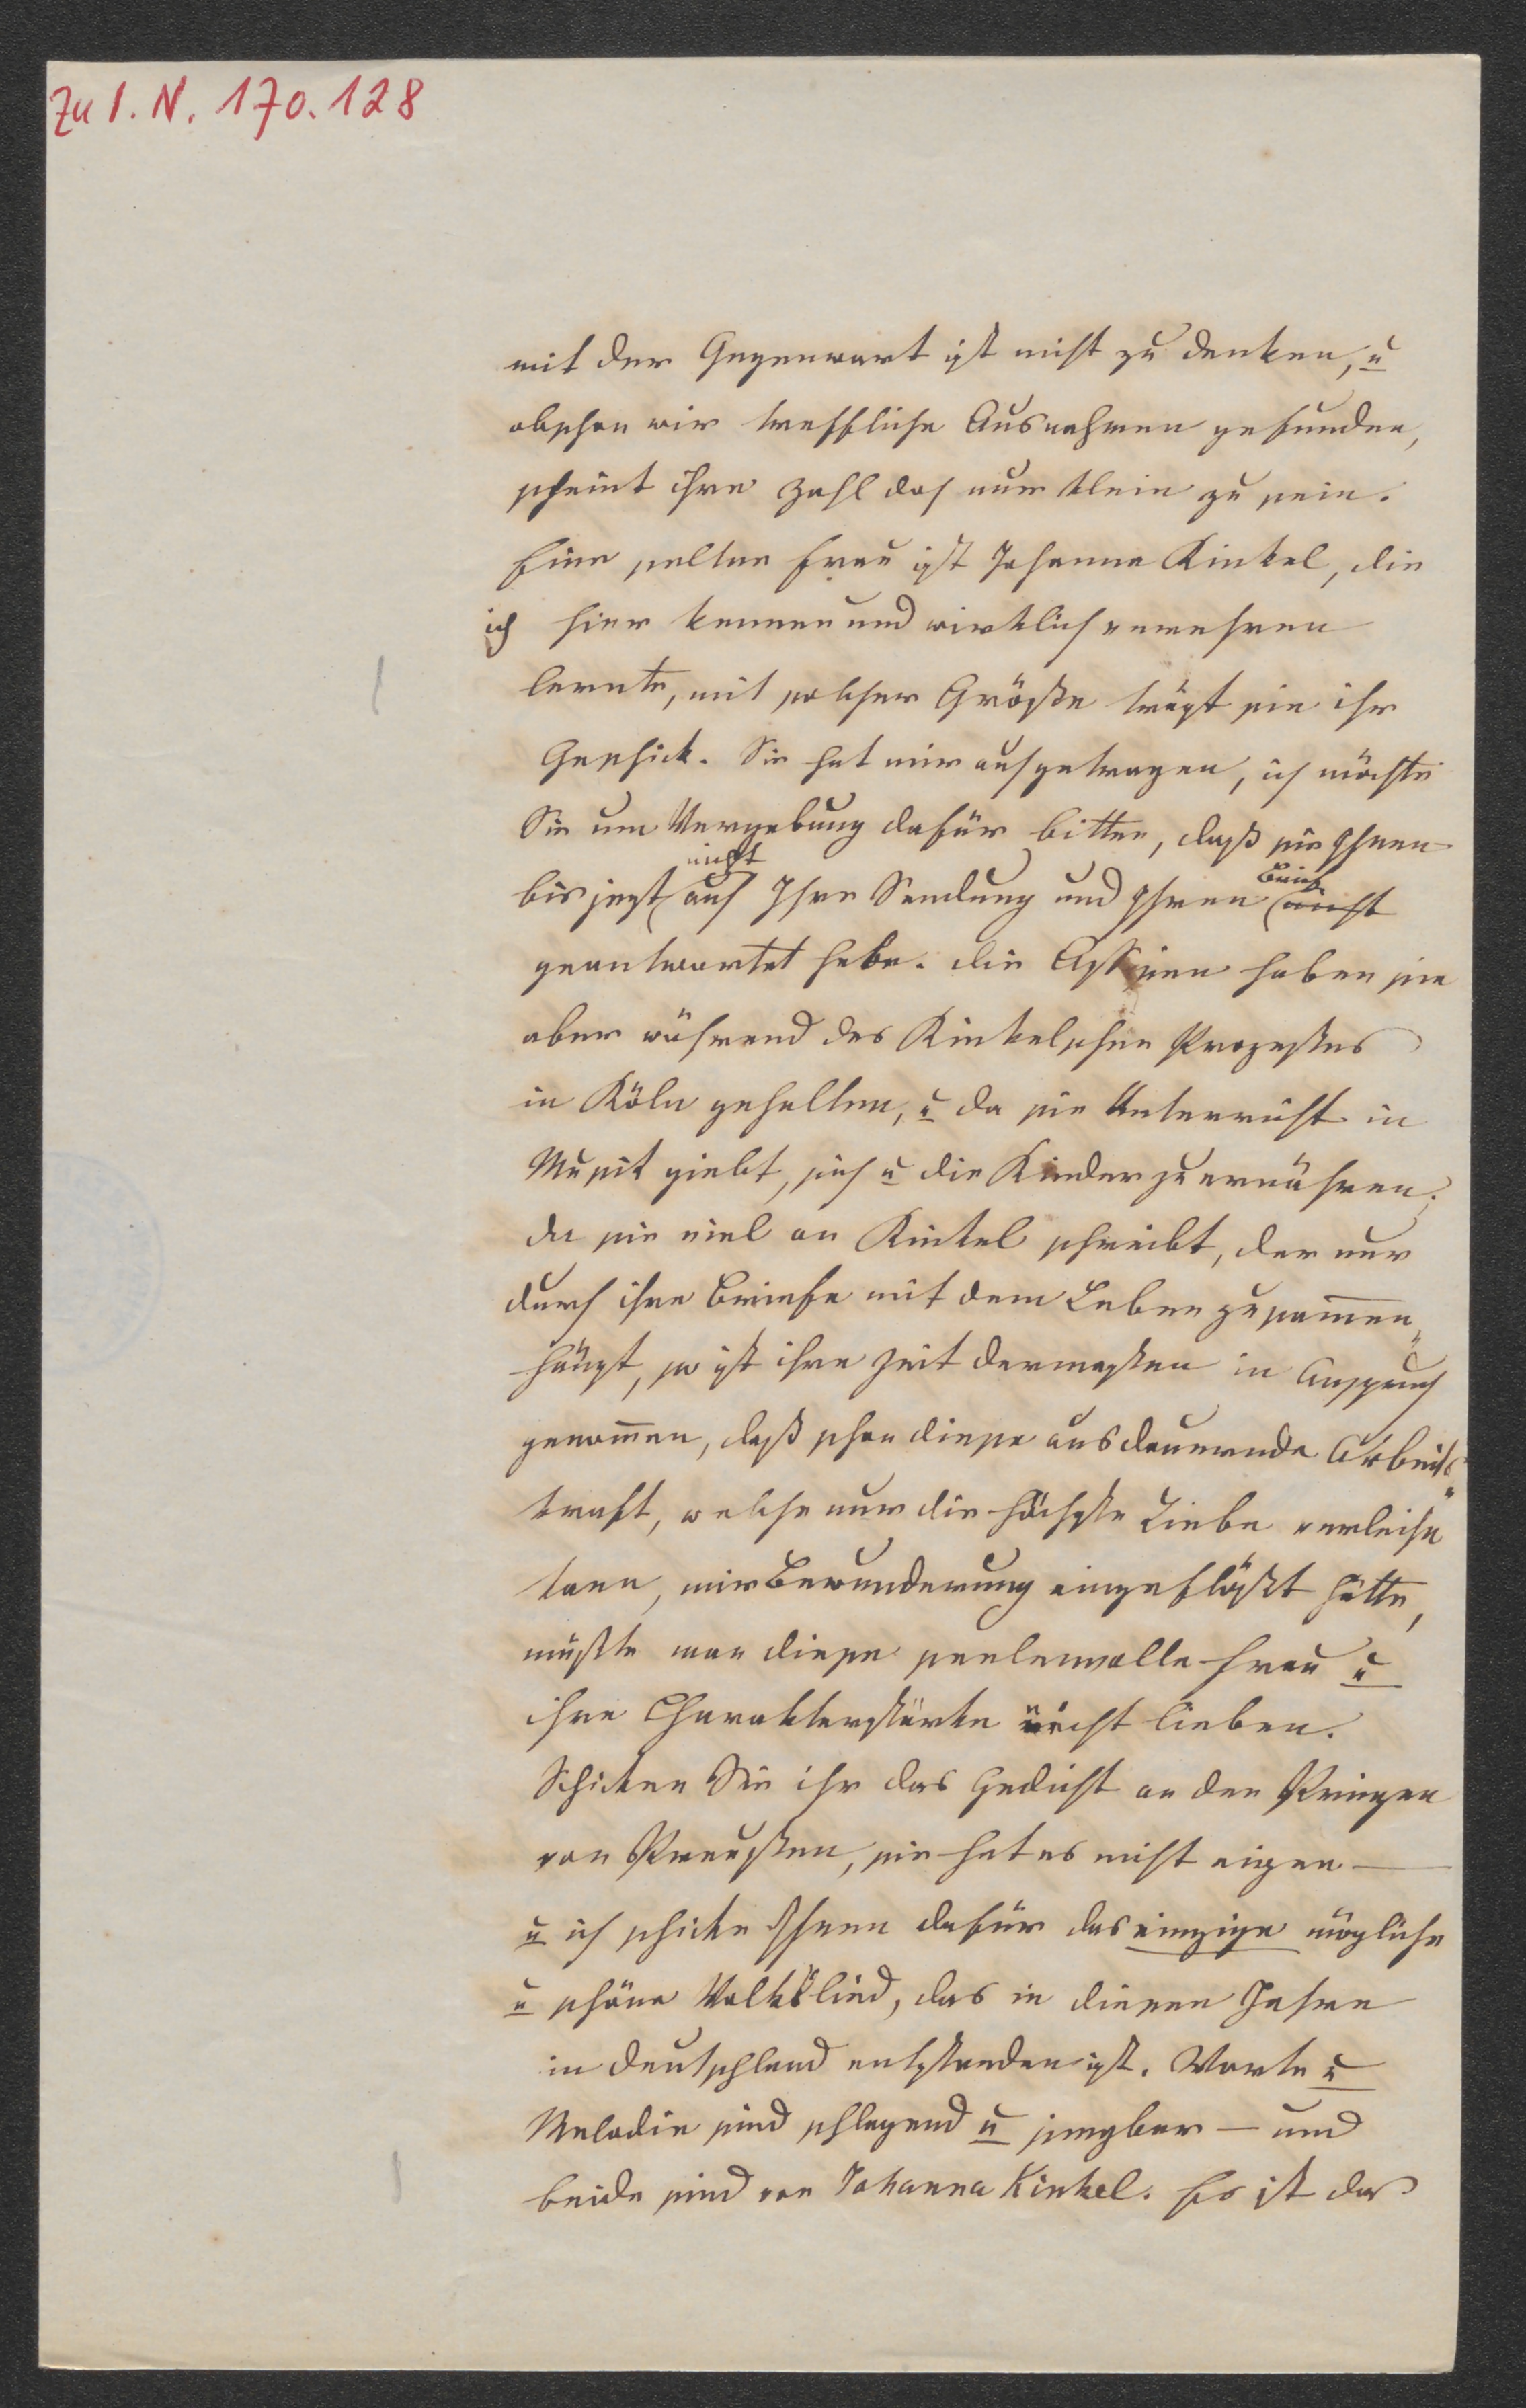 Zu I. N. 170.128
mit der Gegenwart ist nicht zu denken, u
obschon wir treffliche Ausnahmen gefunden,
scheint ihre Zahl doch nur klein zu sein.
Eine seltene Frau ist Johanna Kinkel, die
ich hier kennen und wirklich verehren
lernte, mit solcher Größe trägt sie ihr
Geschick. Sie hat mir aufgetragen, ich möchte
Sie um Vergebung dafür bitten, daß sie Ihnen
nicht Brief
bis jezt auf Ihre Sendung und Ihren nicht
geantwortet habe. Die Assisen haben sie
aber während des Kinkelschen Prozesses
in Köln gehalten, u da sie Unterricht in
Musik giebt, sich u die Kinder zu ernähren;
da sie viel an Kinkel schreibt, der nur
durch ihre Briefe mit dem Leben zusammen„
hängt, so ist ihre Zeit dermaßen in Anspruch
genommen, daß schon diese ausdauernde Arbeits„
kraft, welche nur die höchste Liebe verleihen
kann, mir Bewunderung eingeflößt hätte,
müßte man diese seelenvolle Frau u
ihre Charakterstärke nicht lieben.
Schicken Sie ihr das Gedicht an den Prinzen
von Preußen, sie hat es nicht eigen —
u ich schicke Ihnen dafür das einzige mögliche
u schöne Volkslied, das in diesem Jahre
in Deutschland entstanden ist. Worte u
Melodie sind schlagend u singbar — und
beide sind von Johanna Kinkel. Es ist das